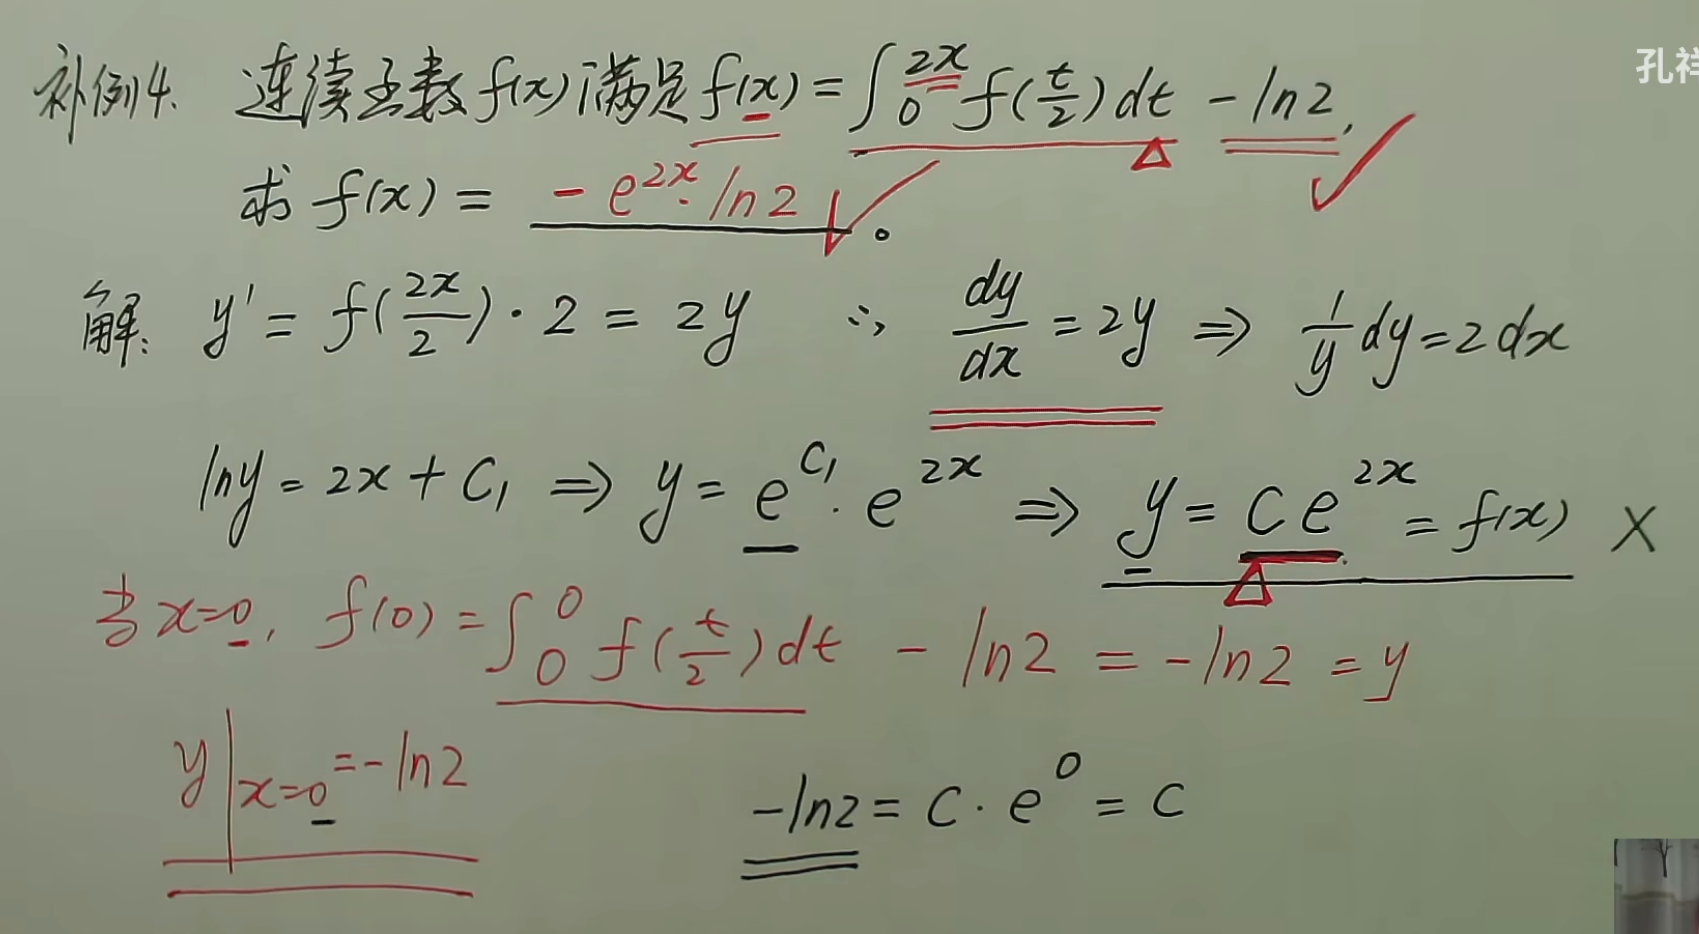 孔祥
补例4. 连续函数f(x)满足f(x)=∫₀²ˣ f(t/2)dt -ln2,
求 f(x) = -e²ˣ·ln2 。
解: y' = f(2x/2)·2 = 2y ∴ dy/dx = 2y ⇒ 1/y dy = 2dx
lny = 2x + C₁ ⇒ y = e^C₁·e^2x ⇒ y = Ce^2x = f(x) ×
当x=0, f(0) = ∫₀⁰ f(t/2)dt - ln2 = -ln2 = y
y|x=0 = -ln2 -ln2 = C·e⁰ = C